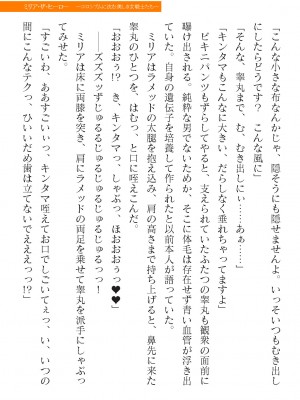 「こんな小さな布なんかじゃ、隠そうにも隠せませんよ。いっそいつもむき出し
にしたらどうです？　こんな風に」
「そんな、睾丸まで、む、むき出しにぃ……あぁ……」
「キンタマもこんなに大きい、だらしなく垂れちゃってますよ」
　ビキニパンツもずらしてやると、支えられていたふたつの睾丸も観衆の面前に
曝け出される。純粋な男でないためか、そこに体毛は存在せず青い血管が浮き出
ていた。自身の遺伝子を培養して作られたと以前本人が語っていた。
　ミリアはラメッドの太腿を抱え込み、肩の高さまで持ち上げると、鼻先に来た
睾丸のひとつを、はむっ、と口に咥えこんだ。
「おおおぅ!?　き、キンタマっ、しゃぶっ、ほおおおぅっ♥♥」
　――ズズズッずじゅるるじゅるじゅるじゅるっっ！
　ミリアは床に両膝を突き、肩にラメッドの両足を乗せて睾丸を派手にしゃぶっ
てみせた。
「すごいわ、ああすごいぃっ、キンタマ咥えてお口でしごいてぇっ、い、いつの
間にこんなテクっ、ひいいだめ歯は立てないでええええっっ!?」